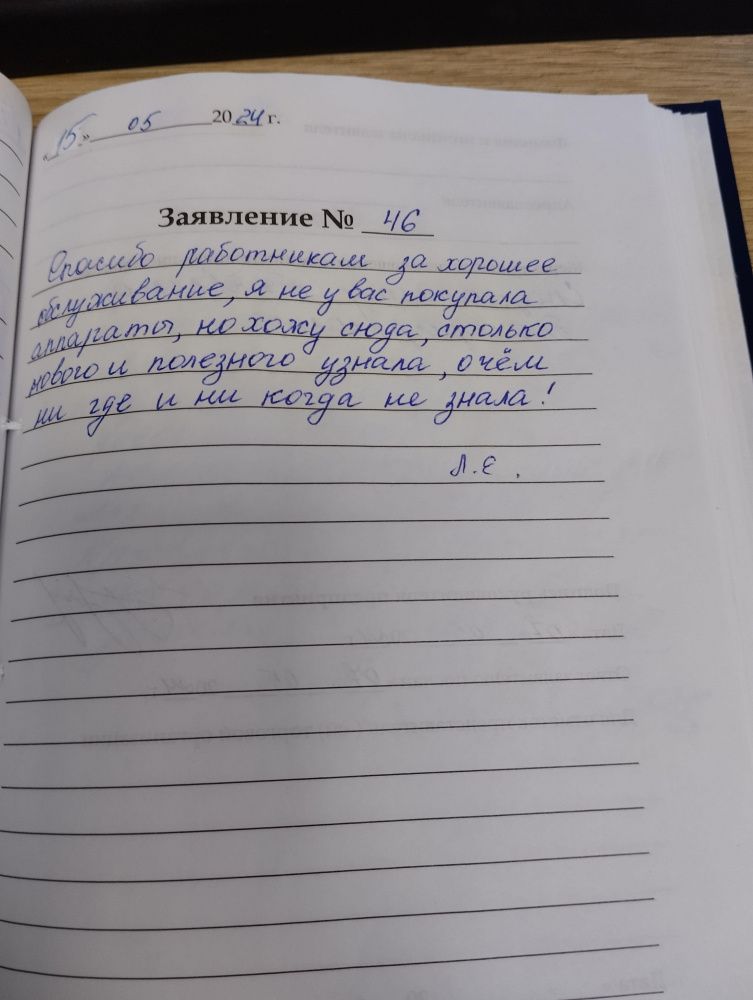 «15.» 05 2024 г.
Заявление № 46
Спасибо работникам за хорошее
обслуживание, я не у вас покупала
аппараты, но хожу сюда, столько
нового и полезного узнала, о чём
ни где и ни когда не знала!
Л.Е.